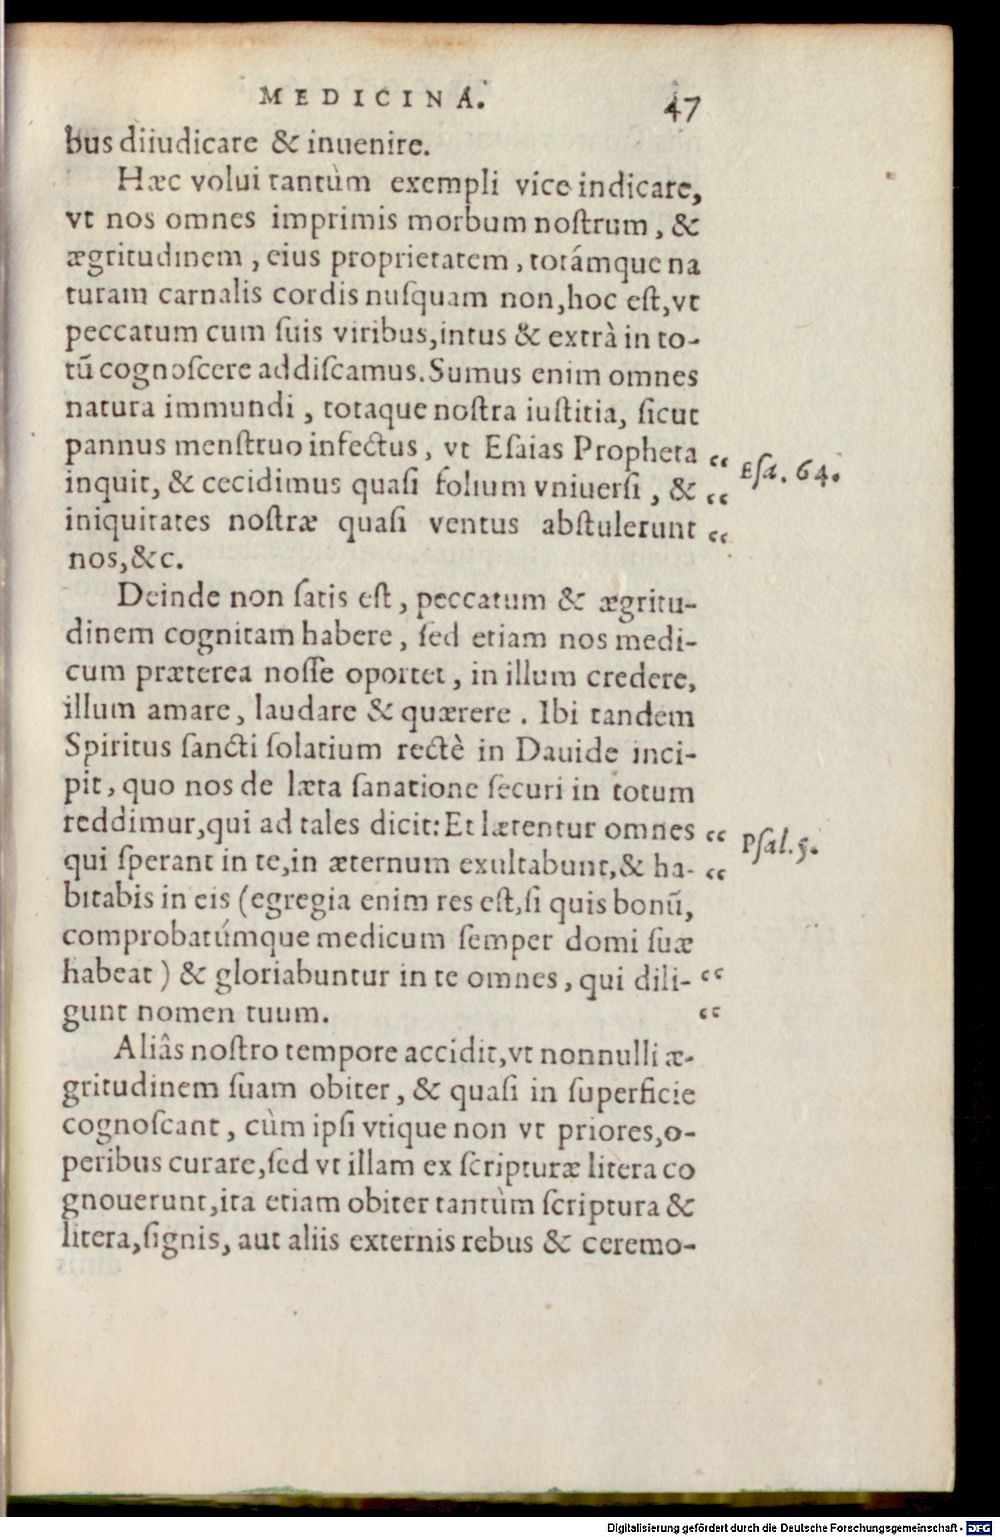 MEDICINA. 47
bus diiudicare & inuenire.
Hæc volui tantùm exempli vice indicare,
vt nos omnes imprimis morbum noſtrum, &
ægritudinem, eius proprietatem, totámque na
turam carnalis cordis nuſquam non, hoc eſt, vt
peccatum cum ſuis viribus, intus & extrà in to-
tū cognoſcere addiſcamus. Sumus enim omnes
natura immundi, totaque noſtra iuſtitia, ſicut
pannus menſtruo infectus, vt Eſaias Propheta “ Eſa. 64.
inquit, & cecidimus quaſi folium vniuerſi, & “
iniquitates noſtræ quaſi ventus abſtulerunt “
nos, &c.
Deinde non ſatis eſt, peccatum & ægritu-
dinem cognitam habere, ſed etiam nos medi-
cum præterea noſſe oportet, in illum credere,
illum amare, laudare & quærere. Ibi tandem
Spiritus ſancti ſolatium rectè in Dauide inci-
pit, quo nos de læta ſanatione ſecuri in totum
reddimur, qui ad tales dicit: Et lætentur omnes “ Pſal. 5.
qui ſperant in te, in æternum exultabunt, & ha- “
bitabis in eis (egregia enim res eſt, ſi quis bonū,
comprobatúmque medicum ſemper domi ſuæ
habeat) & gloriabuntur in te omnes, qui dili- “
gunt nomen tuum. “
Aliâs noſtro tempore accidit, vt nonnulli æ-
gritudinem ſuam obiter, & quaſi in ſuperficie
cognoſcant, cùm ipſi vtique non vt priores, o-
peribus curare, ſed vt illam ex ſcripturæ litera co
gnouerunt, ita etiam obiter tantùm ſcriptura &
litera, ſignis, aut aliis externis rebus & ceremo-
Digitalisierung gefördert durch die Deutsche Forschungsgemeinschaft - DFG